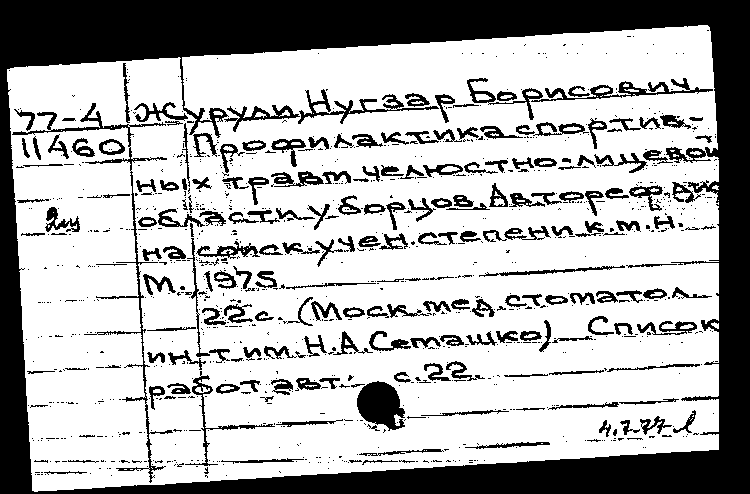 77-4 Журули, Нугзар Борисович.
11460 Профилактика спортив-
ных травм челюстно-лицевой
области у борцов. Автореф. дис
на соиск. учен. степени к.м.н.
М., 1975.
22 с. (Моск. мед. стоматол.
ин-т им. Н.А. Семашко) Список
работ авт.: с. 22.
4.7.77